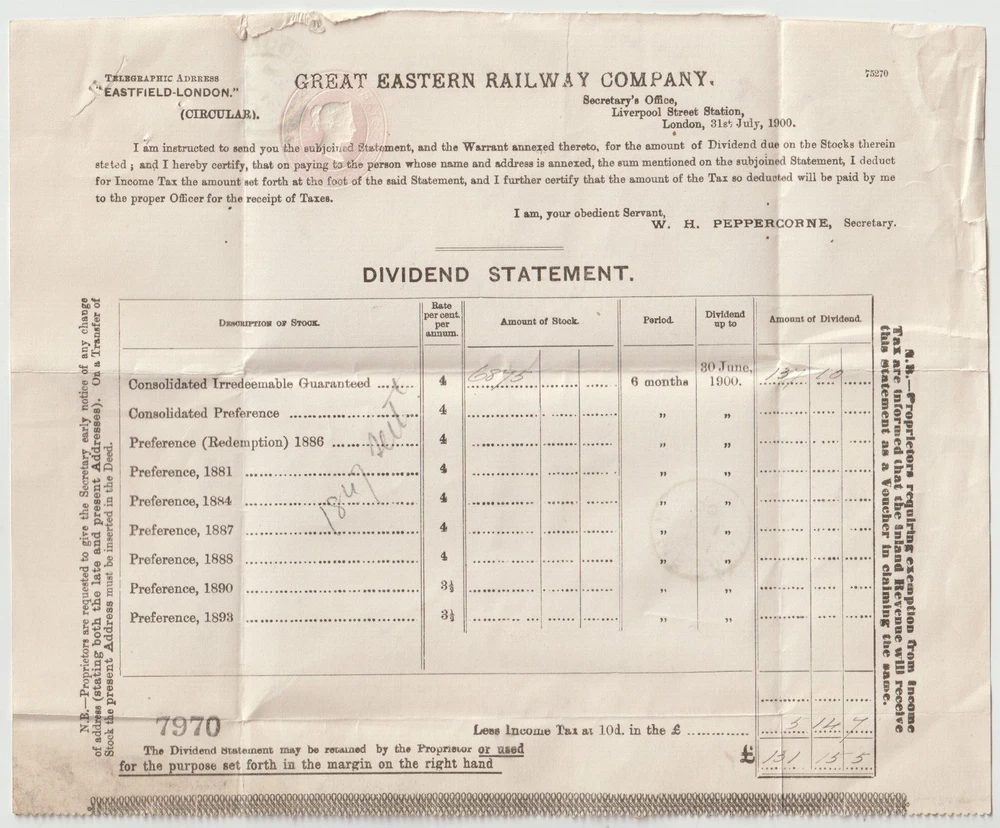 TELEGRAPHIC ADDRESS
"EASTFIELD-LONDON."
(CIRCULAR).
GREAT EASTERN RAILWAY COMPANY.
75270
Secretary's Office,
Liverpool Street Station,
London, 31st July, 1900.
I am instructed to send you the subjoined Statement, and the Warrant annexed thereto, for the amount of Dividend due on the Stocks therein
stated; and I hereby certify, that on paying to the person whose name and address is annexed, the sum mentioned on the subjoined Statement, I deduct
for Income Tax the amount set forth at the foot of the said Statement, and I further certify that the amount of the Tax so deducted will be paid by me
to the proper Officer for the receipt of Taxes.
I am, your obedient Servant,
W. H. PEPPERCORNE, Secretary.
DIVIDEND STATEMENT.
DESCRIPTION OF STOCK. Rate per cent. per annum. Amount of Stock. Period. Dividend up to Amount of Dividend.
Consolidated Irredeemable Guaranteed 4 6875 6 months 30 June, 1900. 137 10
Consolidated Preference 4 " "
Preference (Redemption) 1886 4 " "
Preference, 1881 4 " "
Preference, 1884 4 " "
Preference, 1887 4 " "
Preference, 1888 4 " "
Preference, 1890 3½ " "
Preference, 1893 3½ " "
Less Income Tax at 10d. in the £ 5 14 7
£ 131 15 5
7970
The Dividend Statement may be retained by the Proprietor or used
for the purpose set forth in the margin on the right hand
N.B.—Proprietors are requested to give the Secretary early notice of any change
of address (stating both the late and present Addresses). On a Transfer of
Stock the present Address must be inserted in the Deed.
N.B.—Proprietors requiring exemption from Income
Tax are informed that the Inland Revenue will receive
this Statement as a Voucher in claiming the same.